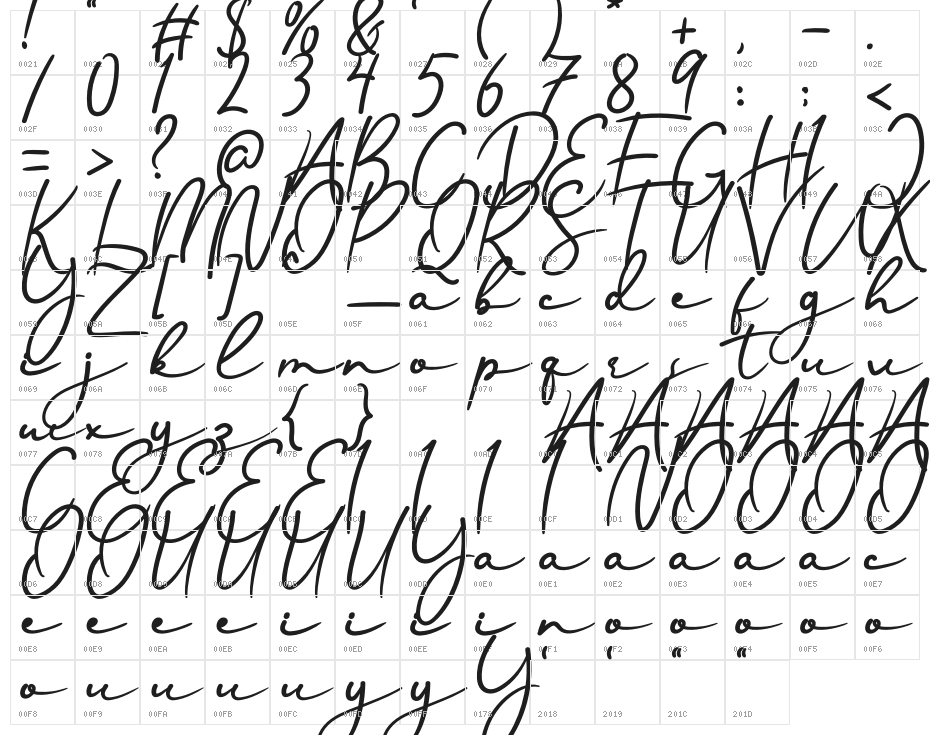 ! " # $ % & ' ( ) * + , - .
0021 0022 0023 0024 0025 0026 0027 0028 0029 002A 002B 002C 002D 002E
/ 0 1 2 3 4 5 6 7 8 9 : ; <
002F 0030 0031 0032 0033 0034 0035 0036 0037 0038 0039 003A 003B 003C
= > ? @ A B C D E F G H I J
003D 003E 003F 0040 0041 0042 0043 0044 0045 0046 0047 0048 0049 004A
K L M N O P Q R S T U V W X
004B 004C 004D 004E 004F 0050 0051 0052 0053 0054 0055 0056 0057 0058
Y Z [ ] _ a b c d e f g h
0059 005A 005B 005D 005E 005F 0061 0062 0063 0064 0065 0066 0067 0068
i j k l m n o p q r s t u v
0069 006A 006B 006C 006D 006E 006F 0070 0071 0072 0073 0074 0075 0076
w x y z { } A A A A A A
0077 0078 0079 007A 007B 007D 00A0 00AD 00C0 00C1 00C2 00C3 00C4 00C5
C E E E E I I I I N O O O O
00C7 00C8 00C9 00CA 00CB 00CC 00CD 00CE 00CF 00D1 00D2 00D3 00D4 00D5
O O U U U U Y a a a a a a c
00D6 00D8 00D9 00DA 00DB 00DC 00DD 00E0 00E1 00E2 00E3 00E4 00E5 00E7
e e e e i i i i n o o o o o
00E8 00E9 00EA 00EB 00EC 00ED 00EE 00EF 00F1 00F2 00F3 00F4 00F5 00F6
o u u u u y y Y ‘ ’ “ ”
00F8 00F9 00FA 00FB 00FC 00FD 00FF 0178 2018 2019 201C 201D